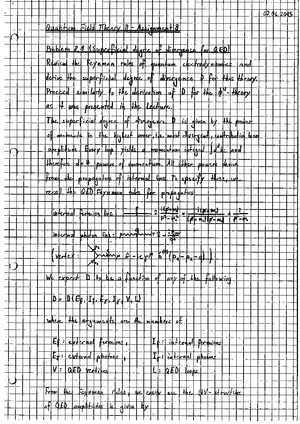 07.06.2015
Quantum Field Theory II - Assignment 8
Problem 2.1 (Superficial degree of divergence for QED)
Review the Feynman rules of quantum electrodynamics and
derive the superficial degree of divergence D for this theory.
Proceed similarly to the derivation of D for the φ⁴-theory
as it was presented in the lecture.
The superficial degree of divergence D is given by the power
of momenta in the highest order, i.e. most divergent, contribution to an
amplitude. Every loop yields a momentum integral ∫d⁴k and
therefore d=4 powers of momentum. All other powers have
from the propagators of internal lines. To specify these, we
recall the QED Feynman rules for propagators
internal fermion line:
internal photon line:
(vertex:
We expect D to be a function of any of the following
D = D(E_f, I_f, E_γ, I_γ, V, L)
where the arguments are the numbers of
E_f: external fermions, I_f: internal fermions
E_γ: external photons, I_γ: internal photons
V: QED vertices L: QED loops
From the Feynman rules, we easily see the UV-structure
of QED amplitudes is given by